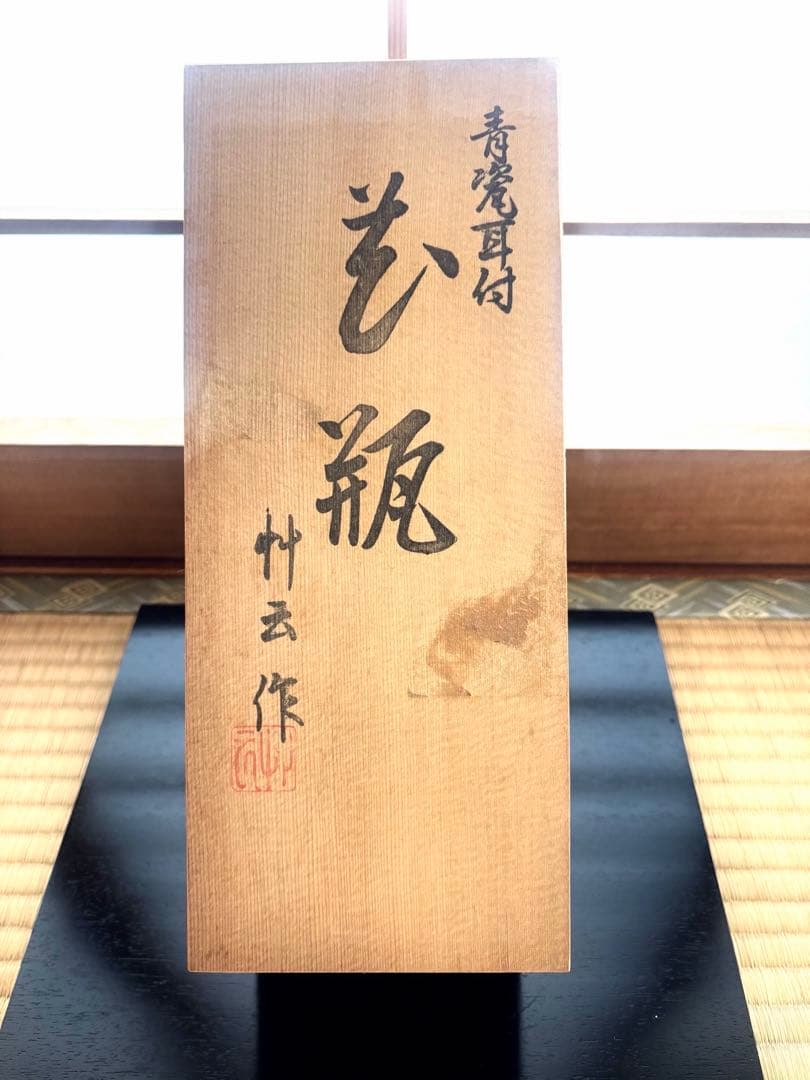 青瓷耳付
花瓶
艸云作